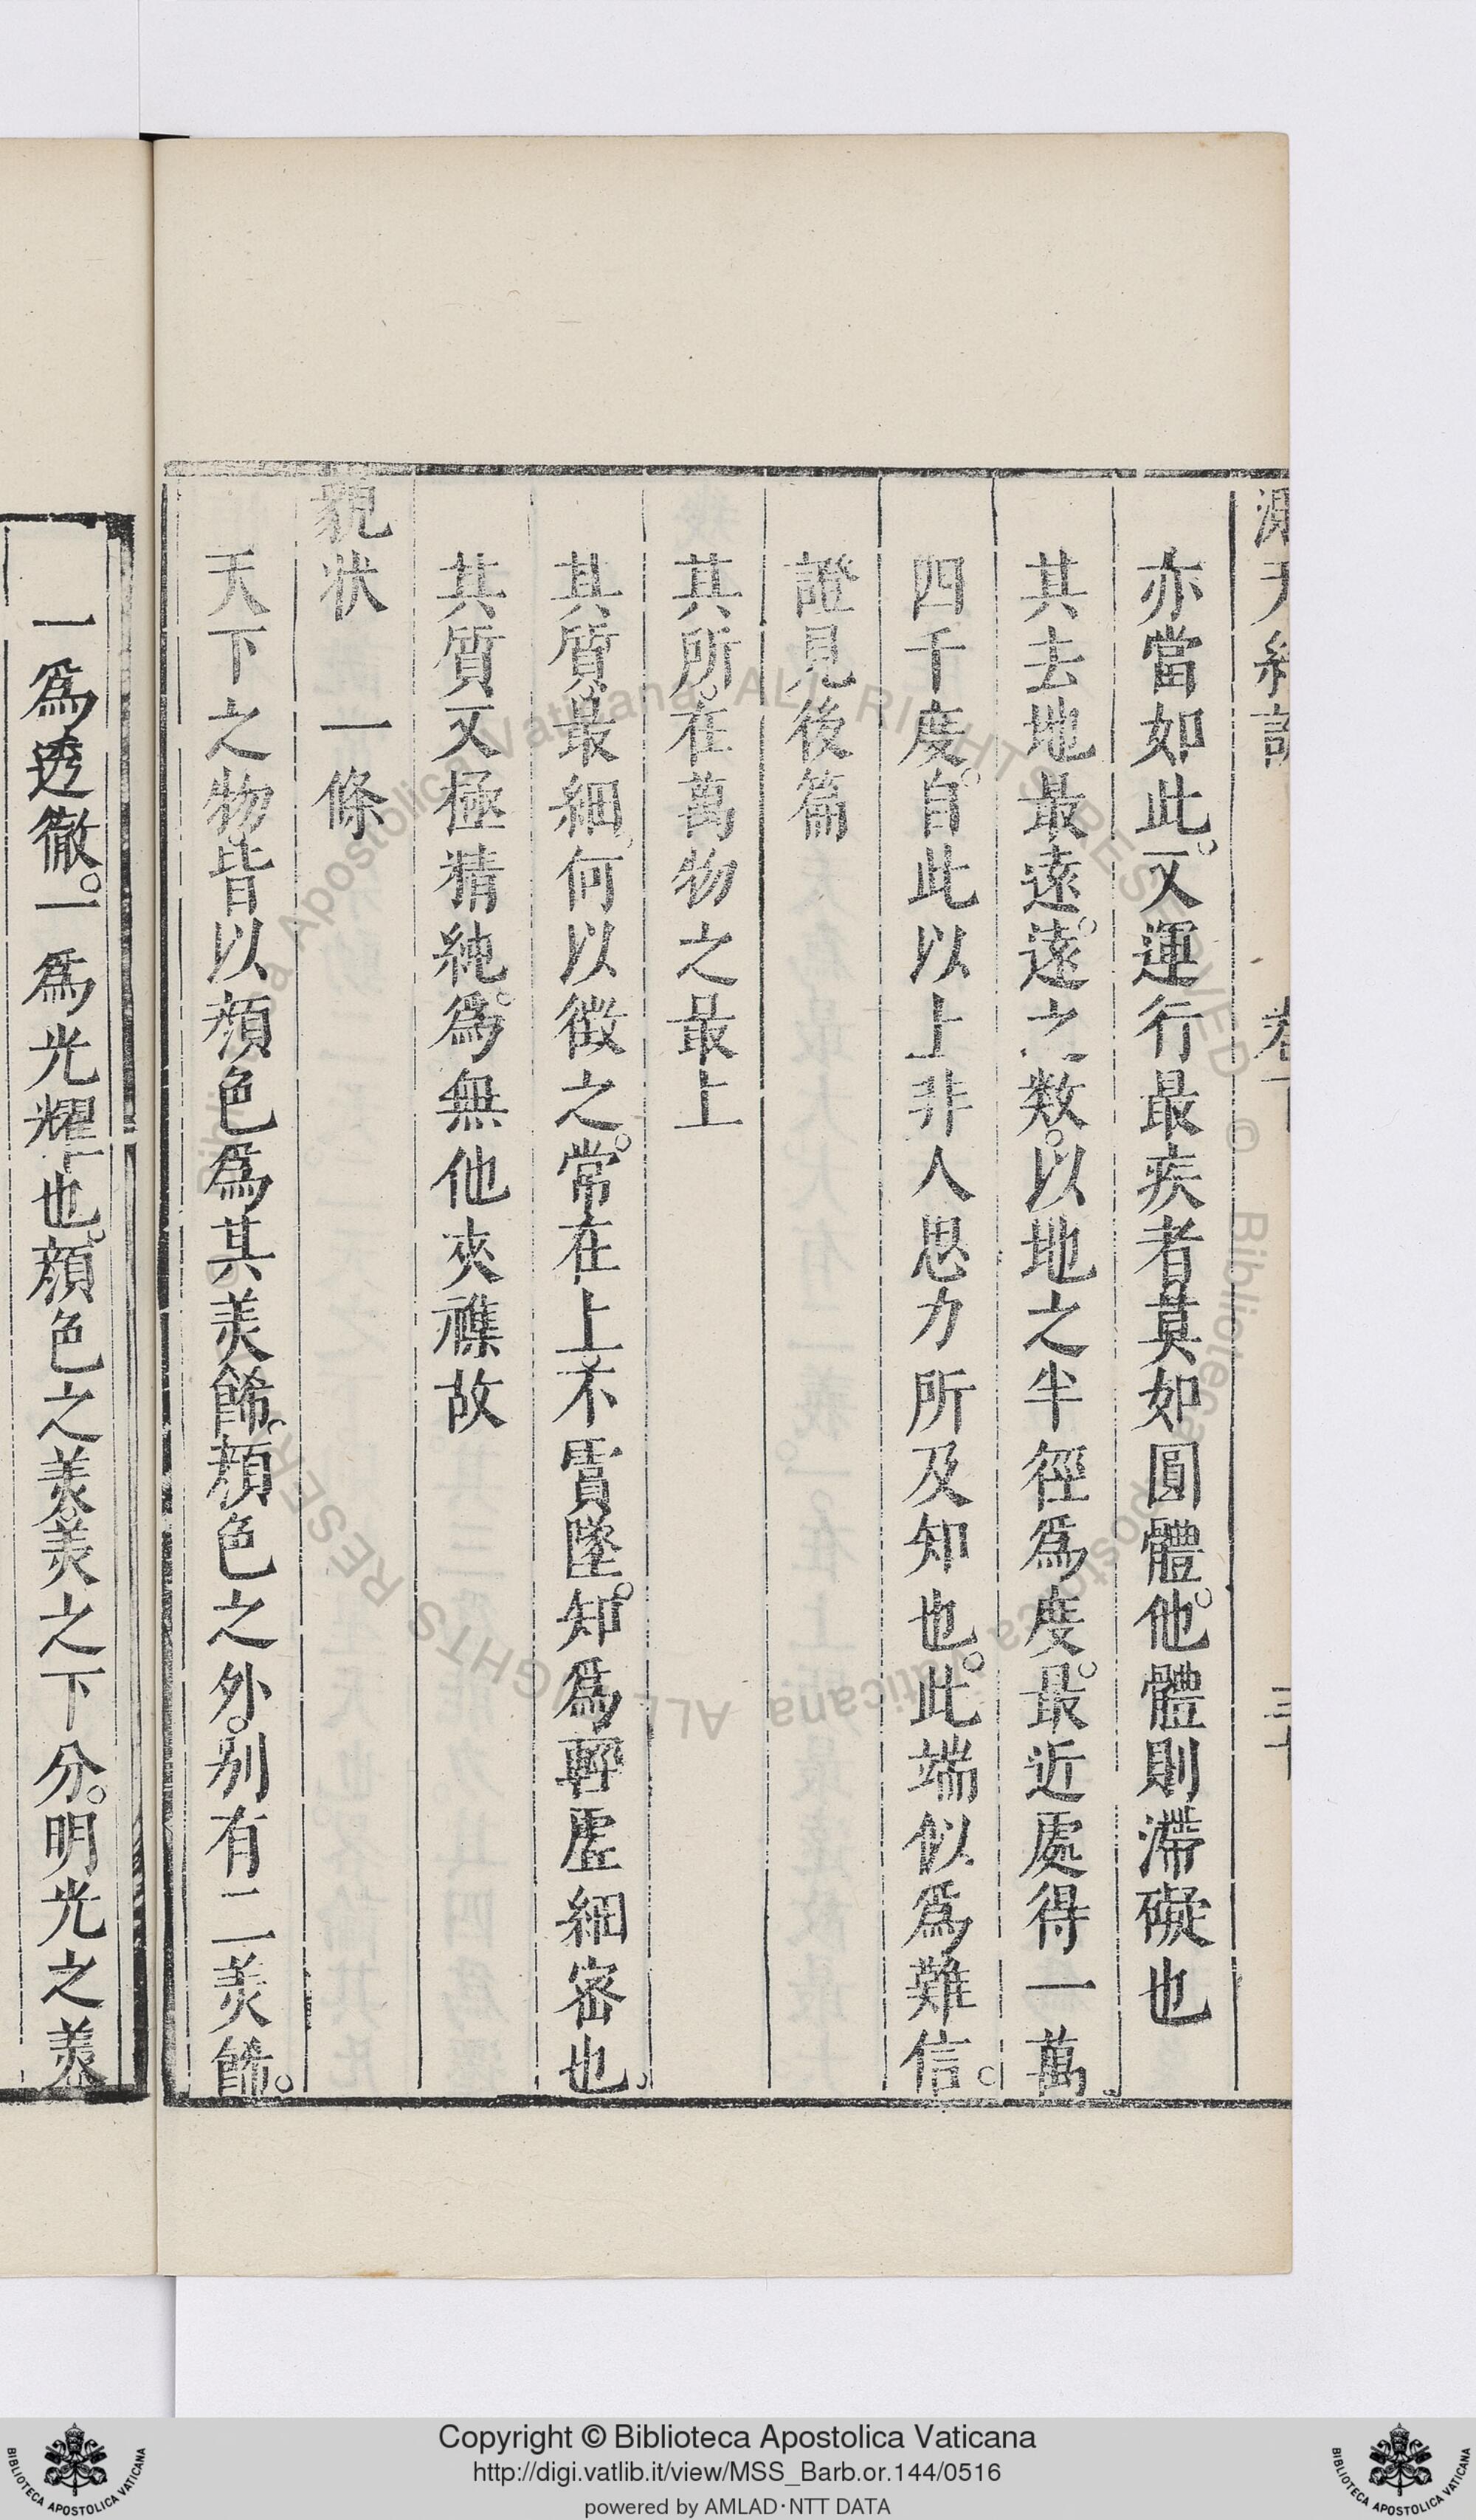 亦當如此。又運行最疾者莫如圓體。他體則滯礙也
其去地最遠。遠之數。以地之半徑爲度。最近處得一萬
四千度。自此以上非人思力所及知也。此端似爲難信。
證見後篇
其所在萬物之最上
其質最細。何以徵之。常在上不霣墜。知爲輕虛細密也
其質又極精純。爲無他夾襍故
貌状 一條
天下之物。皆以顏色爲其羙餙。顏色之外。别有二羙餙。
一爲透徹。一爲光耀也。顏色之羙。羙之下分。明光之羙
Copyright © Biblioteca Apostolica Vaticana
http://digi.vatlib.it/view/MSS_Barb.or.144/0516
powered by AMLAD·NTT DATA
BIBLIOTECA APOSTOLICA VATICANA
BIBLIOTECA APOSTOLICA VATICANA